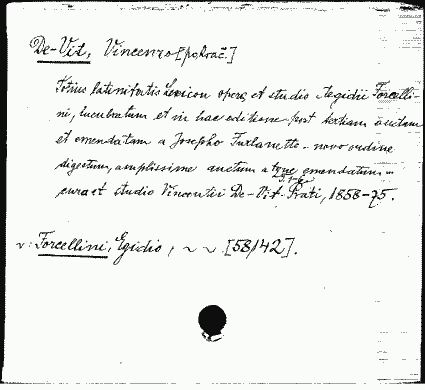 De-Vit, Vincenzo [pokrač.]
Totius latinitatis Lexicon opera et studio Aegidii Forcelli-
ni, lucubratum et in hac editione post tertiam auctam
et emendatam a Josepho Furlanetto... novo ordine
digestum, amplissime auctum atque emendatum...
cura et studio Vincentii De-Vit. Prati, 1858-75.
v: Forcellini, Egidio, ~ ~ [58/42].